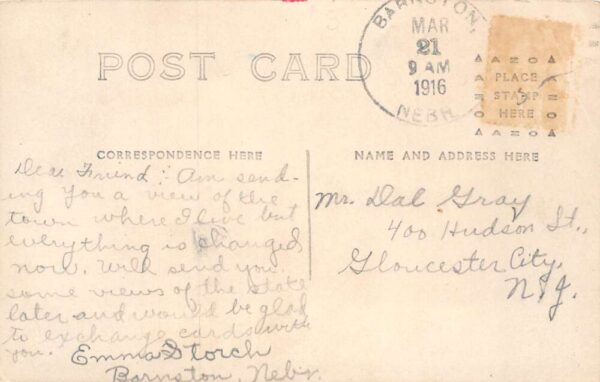 BARNSTON,
MAR
21
9 AM
1916
NEBR.
POST CARD
AZO
PLACE
STAMP
HERE
AZO
CORRESPONDENCE HERE
NAME AND ADDRESS HERE
Dear Friend: Am send-
ing you a view of the
town where I live but
everything is changed
now. Will send you
some views of the state
later and would be glad
to exchange cards with
you. Emma Storch
Barnston, Nebr.
Mr. Dal Gray
400 Hudson St.,
Gloucester City,
N.J.